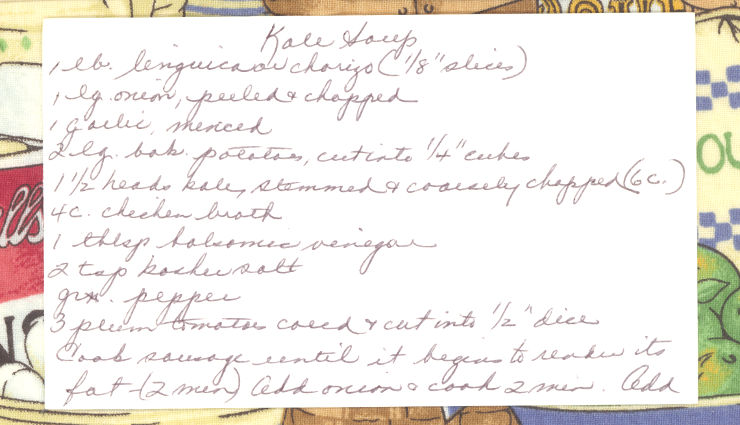 Kale Soup
1 lb. linguica or chorizo (1/8" slices)
1 lg. onion, peeled & chopped
1 garlic, minced
2 lg. bak. potatoes, cut into 1/4" cubes
1 1/2 heads kale, stemmed & coarsely chopped (6 c.)
4 c. chicken broth
1 tblsp balsamic vinegar
2 tsp kosher salt
grn. pepper
3 plum tomatoes cored & cut into 1/2" dice
Cook sausage until it begins to render its
fat - (2 min) Add onion & cook 2 min. Add